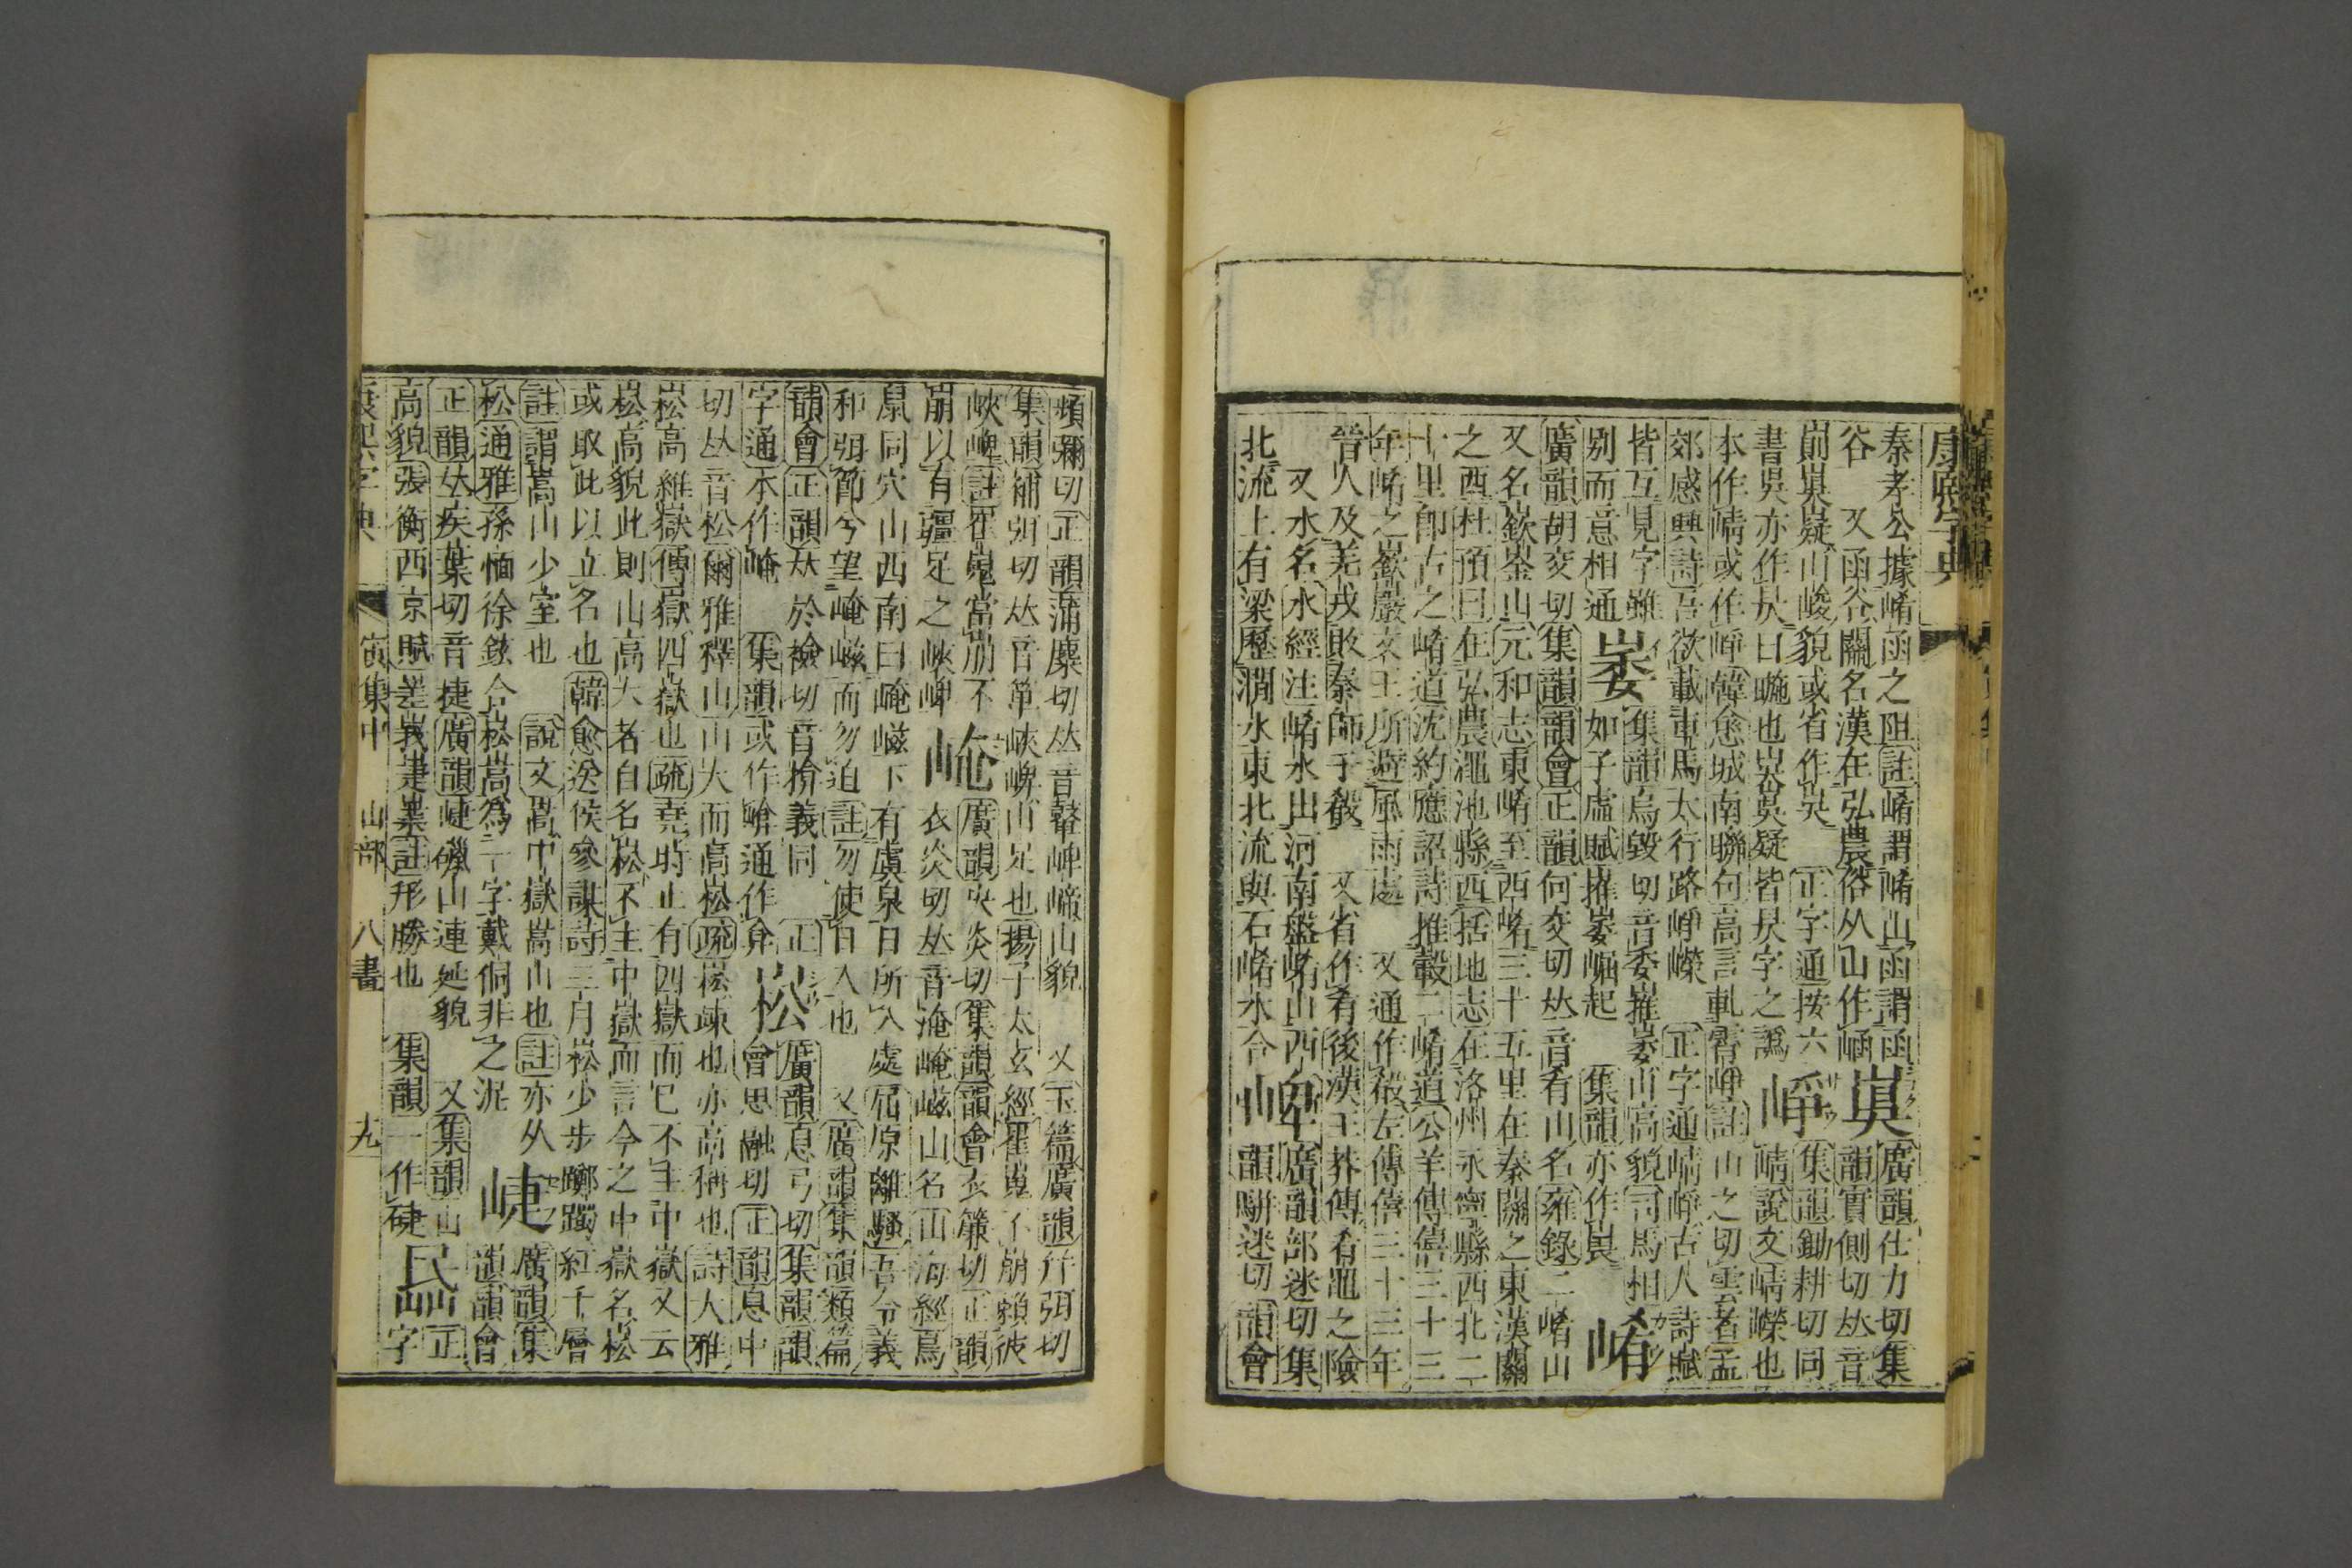 康熙字典
秦孝公據崤函之阻註崤謂崤山函謂函 廣韻仕力切集
谷 又函谷關名漢在弘農俗从山作崡 韻實側切𠀤音
崱 嶷山峻貌或省作 正字通按六 崢 集韻鋤耕切同
書吳亦作昃日暆也 疑皆昃字之譌 崝說文崝嶸也
本作崝或作崢韓愈城南聯句高言軋霄崢註山之切雲者孟
郊感興詩吾欲載車馬太行路崢嶸 正字通崝崢古人詩賦
皆互見字雖 崣 集韻烏毀切音委嶊崣山高貌司馬相
別而意相通 如子虛賦嶊崣崛起 集韻亦作𡸩 崤
廣韻胡交切集韻韻會正韻何交切𠀤音肴山名雍錄二崤山
又名嶔崟山元和志東崤至西崤三十五里在秦關之東漢關
之西杜預曰在弘農澠池縣西括地志在洛州永寧縣西北二
十里卽古之崤道沈約應詔詩推轂二崤道公羊傳僖三十三
年崤之嶔巖文王所避風雨處 又通作殽左傳僖三十三年
晉人及羌戎敗秦師于殽 又省作肴後漢王莽傳肴黽之險
又水名水經注崤水出河南盤崤山西 崥 廣韻部迷切集
北流上有梁歷澗水東北流與石崤水合 韻騈迷切韻會
頻彌切正韻蒲麋切𠀤音鼙崥崹山貌 又玉篇廣韻幷弭切
集韻補弭切𠀤音箄㟙崥山足也揚子太玄經崔嵬不崩賴彼
㟙崥註崔嵬當崩不 崦 廣韻央炎切集韻韻會衣簾切正韻
崩以有疆足之㟙崥 衣炎切𠀤音淹崦嵫山名山海經鳥
鼠同穴山西南曰崦嵫下有虞泉日所入處屈原離騷吾令羲
和弭節兮望崦嵫而勿迫註勿使日入也 又廣韻集韻類篇
韻會正韻𠀤於檢切音揜義同 正 崧 廣韻息弓切集韻韻
字通本作崦 集韻或作㟏通作弇 會思融切正韻息中
切𠀤音松爾雅釋山山大而高崧疏崧竦也亦高稱也詩大雅
崧高維嶽傳嶽四嶽也疏堯時止有四嶽而巳不主中嶽又云
崧高貌此則山高大者自名崧不主中嶽而言今之中嶽名崧
或取此以立名也韓愈送侯參謀詩三月崧少步躑躅紅千層
註謂嵩山少室也 說文嵩中嶽嵩山也註亦从
松通雅孫愐徐鉉合崧嵩為一字戴侗非之泥 崨 廣韻集韻韻會
正韻𠀤疾葉切音捷廣韻崨嶫山連延貌 又集韻山
高貌張衡西京賦嵳峩崨嶪註形勝也 集韻一作㨗 𡸻 正字
康熙字典 寅集中 山部 八畫 九